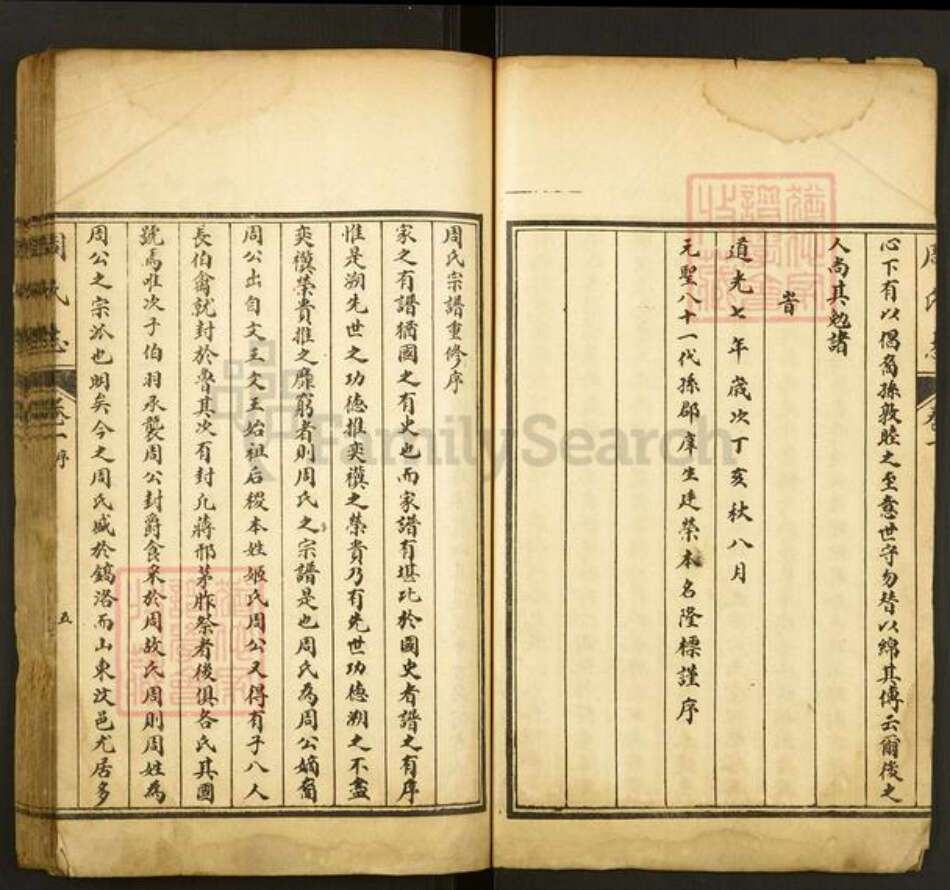 心下有以偶裔孫敦睦之至意世守勿替以綿其傳云爾後之
人尚其勉諸
旹
道光七年歲次丁亥秋八月
元聖八十一代孫郡庠生建榮本名隆標謹序
周氏宗譜重修序
家之有譜猶國之有史也而家譜有堪比於國史者譜之有序
惟是溯先世之功德推奕禩之榮貴乃有先世功德溯之不盡
奕禩榮貴推之靡窮者則周氏之宗譜是也周氏為周公嫡裔
周公出自文王文王始祖后稷本姓姬氏周公又得有子八人
長伯禽就封於魯其次有封凡蔣邢茅胙祭者後俱各氏其國
號焉唯次子伯羽承襲周公封爵食采於周故氏周則周姓為
周公之宗派也明矣今之周氏盛於鎬洛而山東汶邑尤居多
周氏志
卷一序
五
FamilySearch